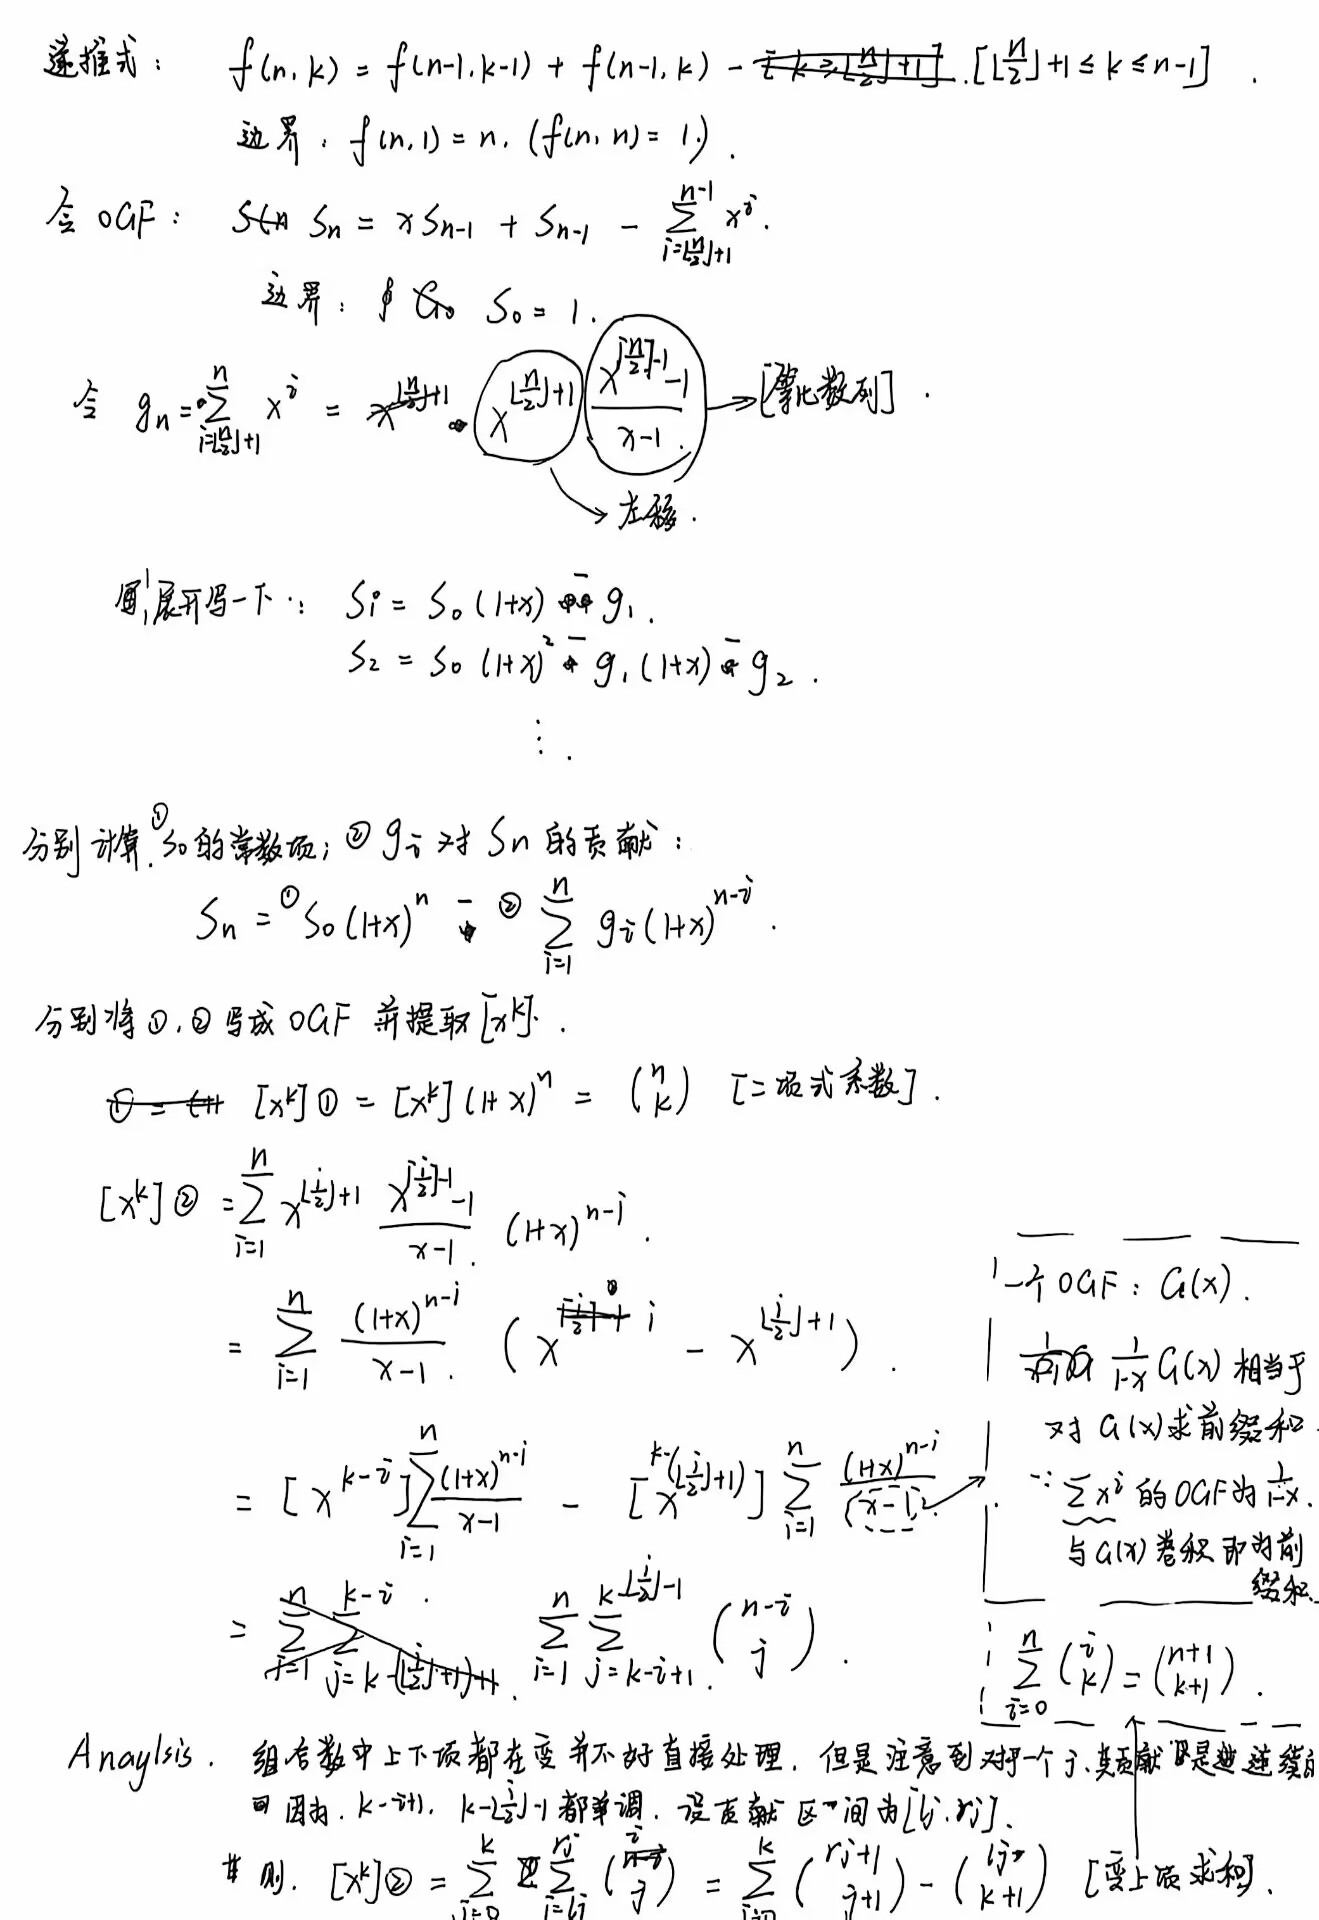 递推式： f(n,k) = f(n-1,k-1) + f(n-1,k) - [⌊n/2⌋+1 ≤ k ≤ n-1] .
边界：f(n,1) = n. (f(n,n) = 1.) .
令 OGF： Sₙ = xSₙ₋₁ + Sₙ₋₁ - ∑_{i=⌊n/2⌋+1}^{n-1} x^i .
边界： S₀ = 1 .
令 gₙ = ∑_{i=⌊n/2⌋+1}^{n} x^i = x^{⌊n/2⌋+1} (x^{⌈n/2⌉-1} - 1)/(x-1) . → [等比数列] .
→ 左移 .
展开写一下： S₁ = S₀(1+x) - g₁ .
S₂ = S₀(1+x)² - g₁(1+x) - g₂ .
⋮ .
分别计算 ① S₀的常数项；② gᵢ 对 Sₙ 的贡献：
Sₙ = ① S₀(1+x)^n - ② ∑_{i=1}^{n} gᵢ(1+x)^{n-i} .
分别将 ①.② 写成 OGF 并提取 [x^k] .
[x^k]① = [x^k](1+x)^n = (n k) [二项式系数] .
[x^k]② = ∑_{i=1}^{n} x^{⌊i/2⌋+1} (x^{⌈i/2⌉-1} - 1)/(x-1) . (1+x)^{n-i} .
= ∑_{i=1}^{n} (1+x)^{n-i}/(x-1) . (x^i - x^{⌊i/2⌋+1}) .
= [x^{k-i}] ∑_{i=1}^{n} (1+x)^{n-i}/(x-1) - [x^{k-(⌊i/2⌋+1)}] ∑_{i=1}^{n} (1+x)^{n-i}/(x-1) →
= ∑_{i=1}^{n} ∑_{j=k-i+1}^{k-⌊i/2⌋-1} (n-i j) .
一个 OGF：G(x) .
1/(1-x) G(x) 相当于
对 G(x)求前缀和 .
∵ ∑x^i 的OGF为 1/(1-x) .
与G(x)卷积即为前
缀和 .
∑_{i=0}^{n} (i k) = (n+1 k+1) .
Anaylsis . 组合数中上下项都在变并不好直接处理. 但是注意到对于一个 j、其贡献是连续的
因为. k-i+1, k-⌊i/2⌋-1 都单调. 设贡献区间为[lj, rj] .
则. [x^k]② = ∑_{j=0}^{k} ∑_{i=lj}^{rj} (i j) = ∑_{j=0}^{k} (rj+1 j+1) - (lj k+1) [变上项求和] .